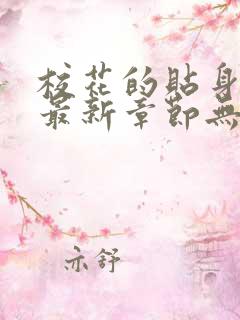 校花的貼身
最新章節無
亦舒